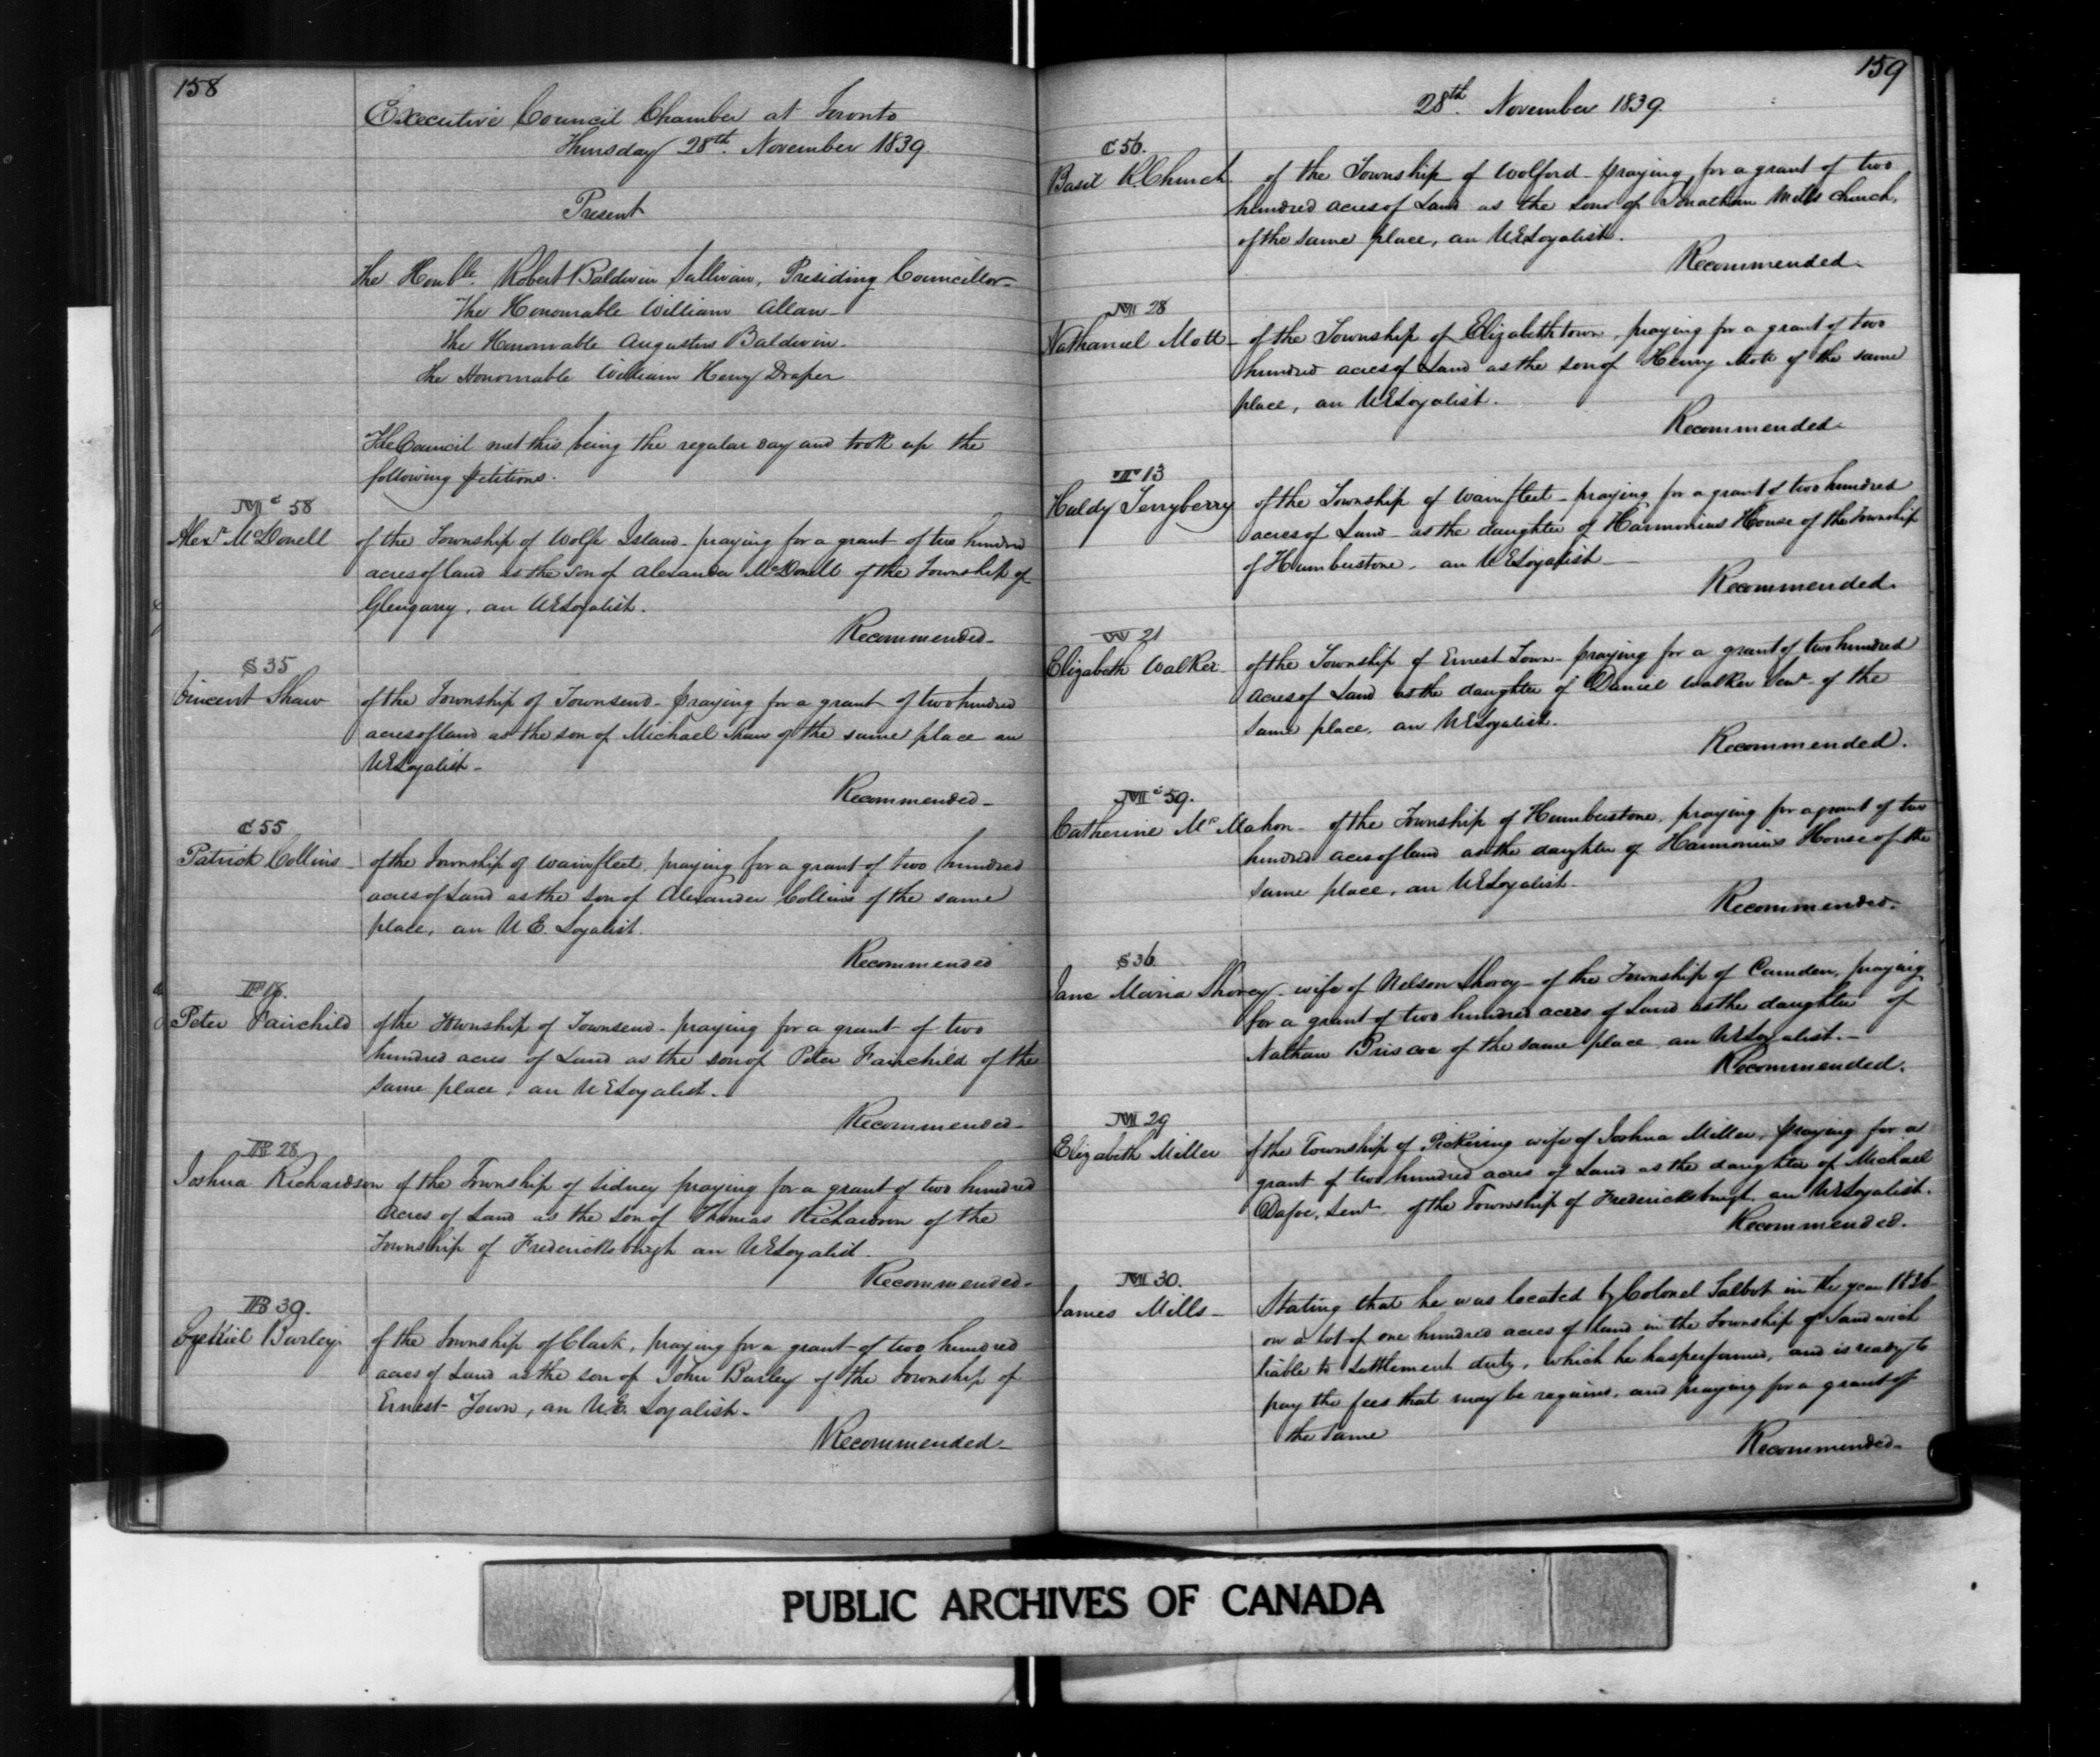 158
Executive Council Chamber at Toronto
Thursday 28th. November 1839.
Present
The Honble. Robert Baldwin Sullivan, Presiding Councillor-
The Honourable William Allan-
The Honourable Augustus Baldwin-
The Honourable William Henry Draper
The Council met this being the regular day and took up the
following petitions.
Mc 58
Alexr McDonell of the Township of Wolfe Island - praying for a grant of two hundred
acres of land as the son of Alexander McDonell of the Township of
Glengarry, an UELoyalist.
Recommended-
S 35
Vincent Shaw of the Township of Townsend - praying for a grant of two hundred
acres of land as the son of Michael Shaw of the same place an
UELoyalist-
Recommended-
C 55
Patrick Collins - of the Township of Wainfleet, praying for a grant of two hundred
acres of Land as the son of Alexander Collins of the same
place, an U.E. Loyalist.
Recommended
F
Peter Fairchild of the Township of Townsend - praying for a grant of two
hundred acres of Land as the son of Peter Fairchild of the
same place, an UELoyalist.
Recommended-
R 28
Joshua Richardson of the Township of Sidney praying for a grant of two hundred
acres of Land as the son of Thomas Richardson of the
Township of Fredericksburgh an UELoyalist.
Recommended-
B 39.
Ezekiel Burley. of the Township of Clark, praying for a grant of two hundred
acres of Land as the son of John Burley of the Township of
Ernest Town, an U.E. Loyalist-
Recommended-
159
28th. November 1839
C 56.
Basil R. Church of the Township of Wolford - praying for a grant of two
hundred acres of Land as the son of Jonathan Mills Church,
of the same place, an UELoyalist.
Recommended-
M 28
Nathaniel Mott - of the Township of Elizabethtown, praying for a grant of two
hundred acres of Land as the son of Henry Mott of the same
place, an UELoyalist.
Recommended-
T 13
Huldy Terryberry of the Township of Wainfleet - praying for a grant of two hundred
acres of Land - as the daughter of Harmonius House of the Township
of Humberstone - an UELoyalist-
Recommended.
W 21
Elizabeth Walker of the Township of Ernest Town - praying for a grant of two hundred
acres of Land as the daughter of Daniel Walker Senr. of the
same place, an UELoyalist.
Recommended.
Mc 59.
Catherine McMahon - of the Township of Humberstone, praying for a grant of two
hundred acres of land as the daughter of Harmonius House of the
same place, an UELoyalist.
Recommended.
S 36
Jane Maria Shorey - wife of Nelson Shorey - of the Township of Camden, praying
for a grant of two hundred acres of Land as the daughter of
Nathan Briscoe of the same place an UELoyalist.-
Recommended.
M 29
Elizabeth Miller of the Township of Pickering wife of Joshua Miller, praying for a
grant of two hundred acres of Land as the daughter of Michael
Dafoe, Senr. of the Township of Fredericksburgh an UELoyalist.
Recommended.
M 30.
James Mills - Stating that he was located by Colonel Talbot in the year
on a lot of one hundred acres of land in the Township of Sandwich
liable to Settlement duty, which he has performed, and is ready to
pay the fees that may be required, and praying for a grant of
the same
Recommended-
PUBLIC ARCHIVES OF CANADA